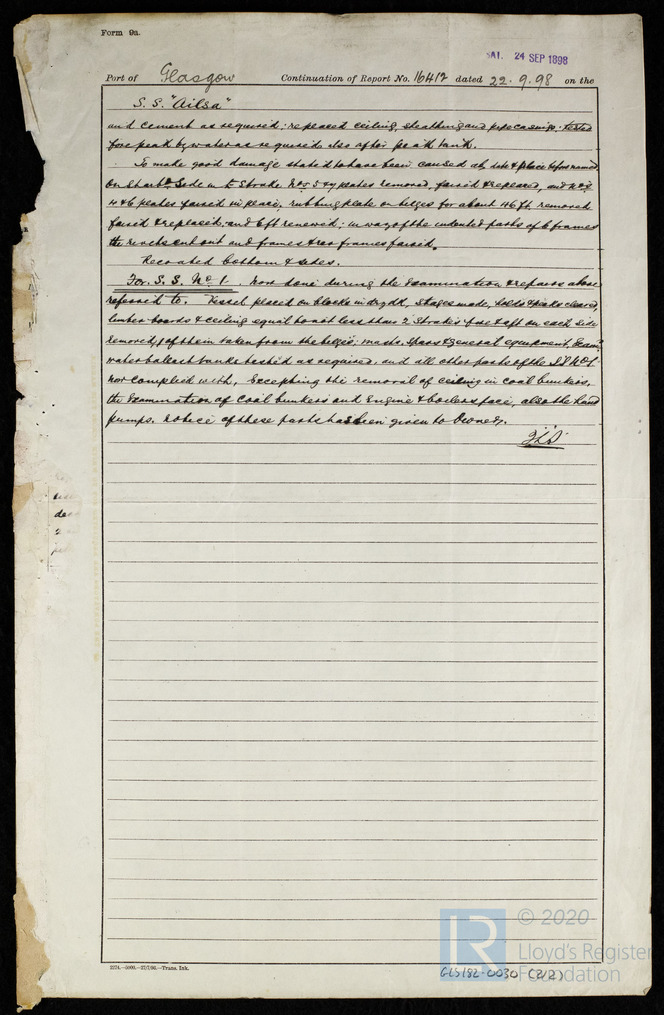 Form 9a.
SAT. 24 SEP 1898
Port of Glasgow Continuation of Report No. 16412 dated 22.9.98 on the
S.S. "Ailsa"
and cement as required; replaced ceiling, sheathing and pipe casings; tested
fore peak by water as required also after peak tank.
To make good damage stated to have been caused at, date & place before named.
On Starbd Side in E Strake Nos 5 & 7 plates removed, faired & replaced, and Nos
4 & 6 plates faired in place; rubbing plate on bilges for about 46 ft. removed
faired & replaced and 6ft renewed; in way of the indented parts of 6 frames
the rivets cut out and frames & rev frames faired.
Recoated bottom & sides.
For S.S. No 1. Now done during the Examination & repairs above
referred to. Vessel placed on blocks in drydk, stages made, holds & peaks cleared,
limber boards & ceiling equal to not less than 2 Strakes fore & aft on each side
removed, 1 of them taken from the bilges; masts, spars & general equipment, Exam
water ballast tanks tested as required, and all other parts of the S.S No 1
now complied with, Excepting the removal of ceiling in coal bunkers,
the Examination of Coal bunkers and Engine & boiler space, also the hand
pumps. Notice of these parts has been given to Owners.
2274.—1000.—27/7/98.—Trans. Ink.
LR © 2020
Lloyd's Register
Foundation
GLS182-0030 (2/2)